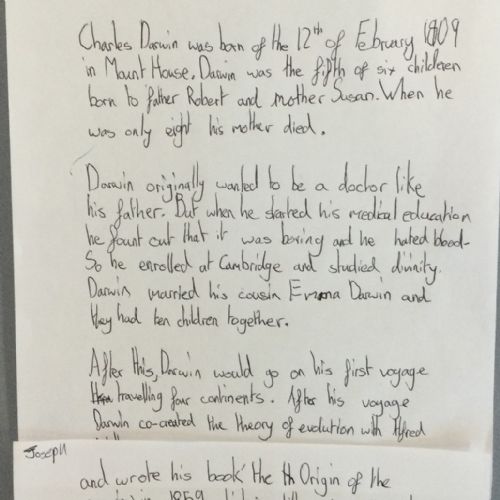 Charles Darwin was born of the 12th of February 1809
in Mount House. Darwin was the fifth of six childeren
born to father Robert and mother Susan. When he
was only eight his mother died.
Darwin originally wanted to be a doctor like
his father. But when he started his medical education
he fount out that it was boring and he hated blood.
So he enrolled at Cambridge and studied divinity.
Darwin married his cousin Emma Darwin and
they had ten children together.
After this, Darwin would go on his first voyage
travelling four continents. After his voyage
Darwin co-created the theory of evolution with Alfred
Joseph
and wrote his book the th Origin of the
in 1859